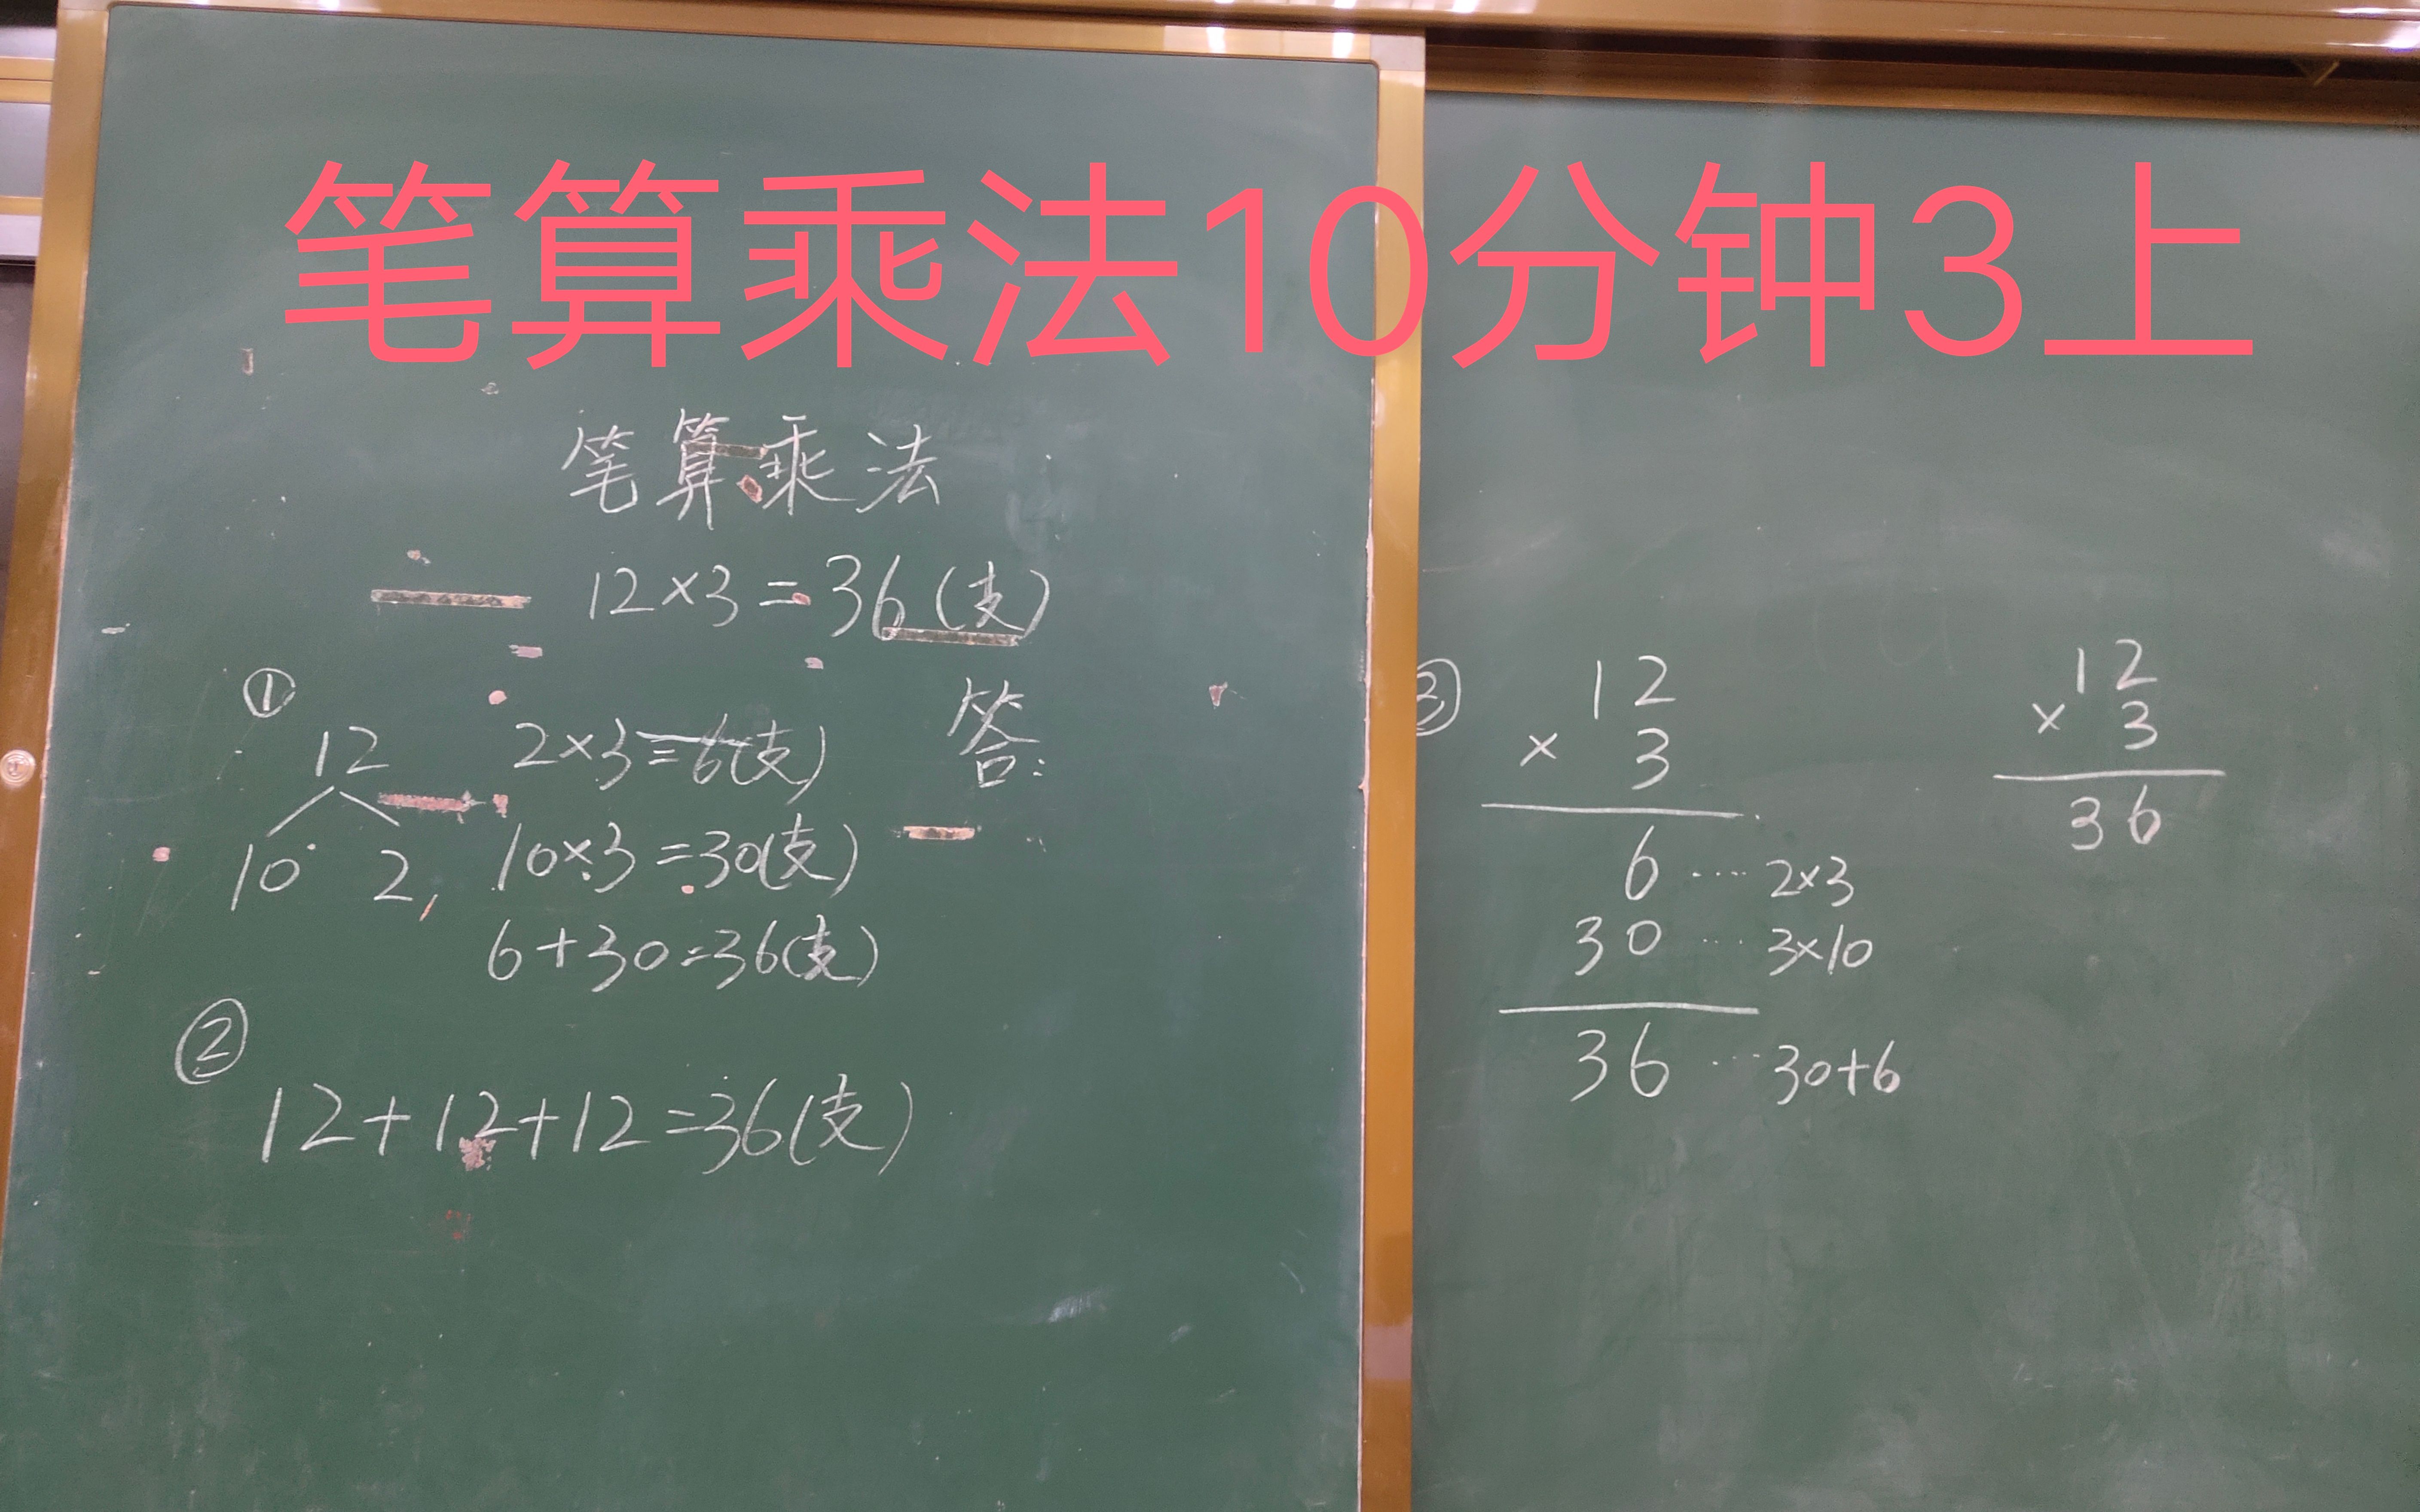 笔算乘法10分钟3上
笔算乘法
12×3=36(支)
①
12
10 2,
2×3=6(支)
10×3=30(支)
6+30=36(支)
答:
②
12+12+12=36(支)
③
12
× 3
6 ···· 2×3
30 ···· 3×10
36 ···· 30+6
12
× 3
36